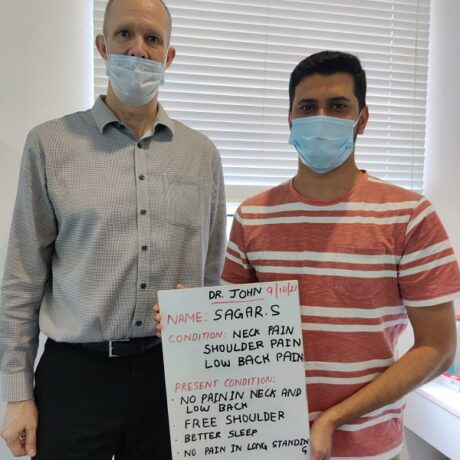 DR. JOHN 9/10/21
NAME: SAGAR.S
CONDITION: NECK PAIN
SHOULDER PAIN
LOW BACK PAIN
PRESENT CONDITION:
· NO PAIN IN NECK AND
LOW BACK
· FREE SHOULDER
· BETTER SLEEP
· NO PAIN IN LONG STANDING